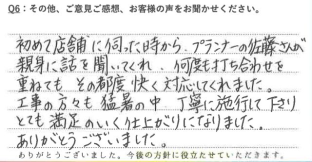 Q6：その他、ご意見ご感想、お客様の声をお聞かせください。
初めて店舗に伺った時から、プランナーの佐藤さんが
親身に話を聞いてくれ、何度も打ち合わせを
重ねても その都度 快く対応してくれました。
工事の方々も 猛暑の中 丁寧に施行して下さり
とても 満足のいく仕上がりになりました。
ありがとうございました。
ありがとうございました。今後の方針に役立たせていただきます。